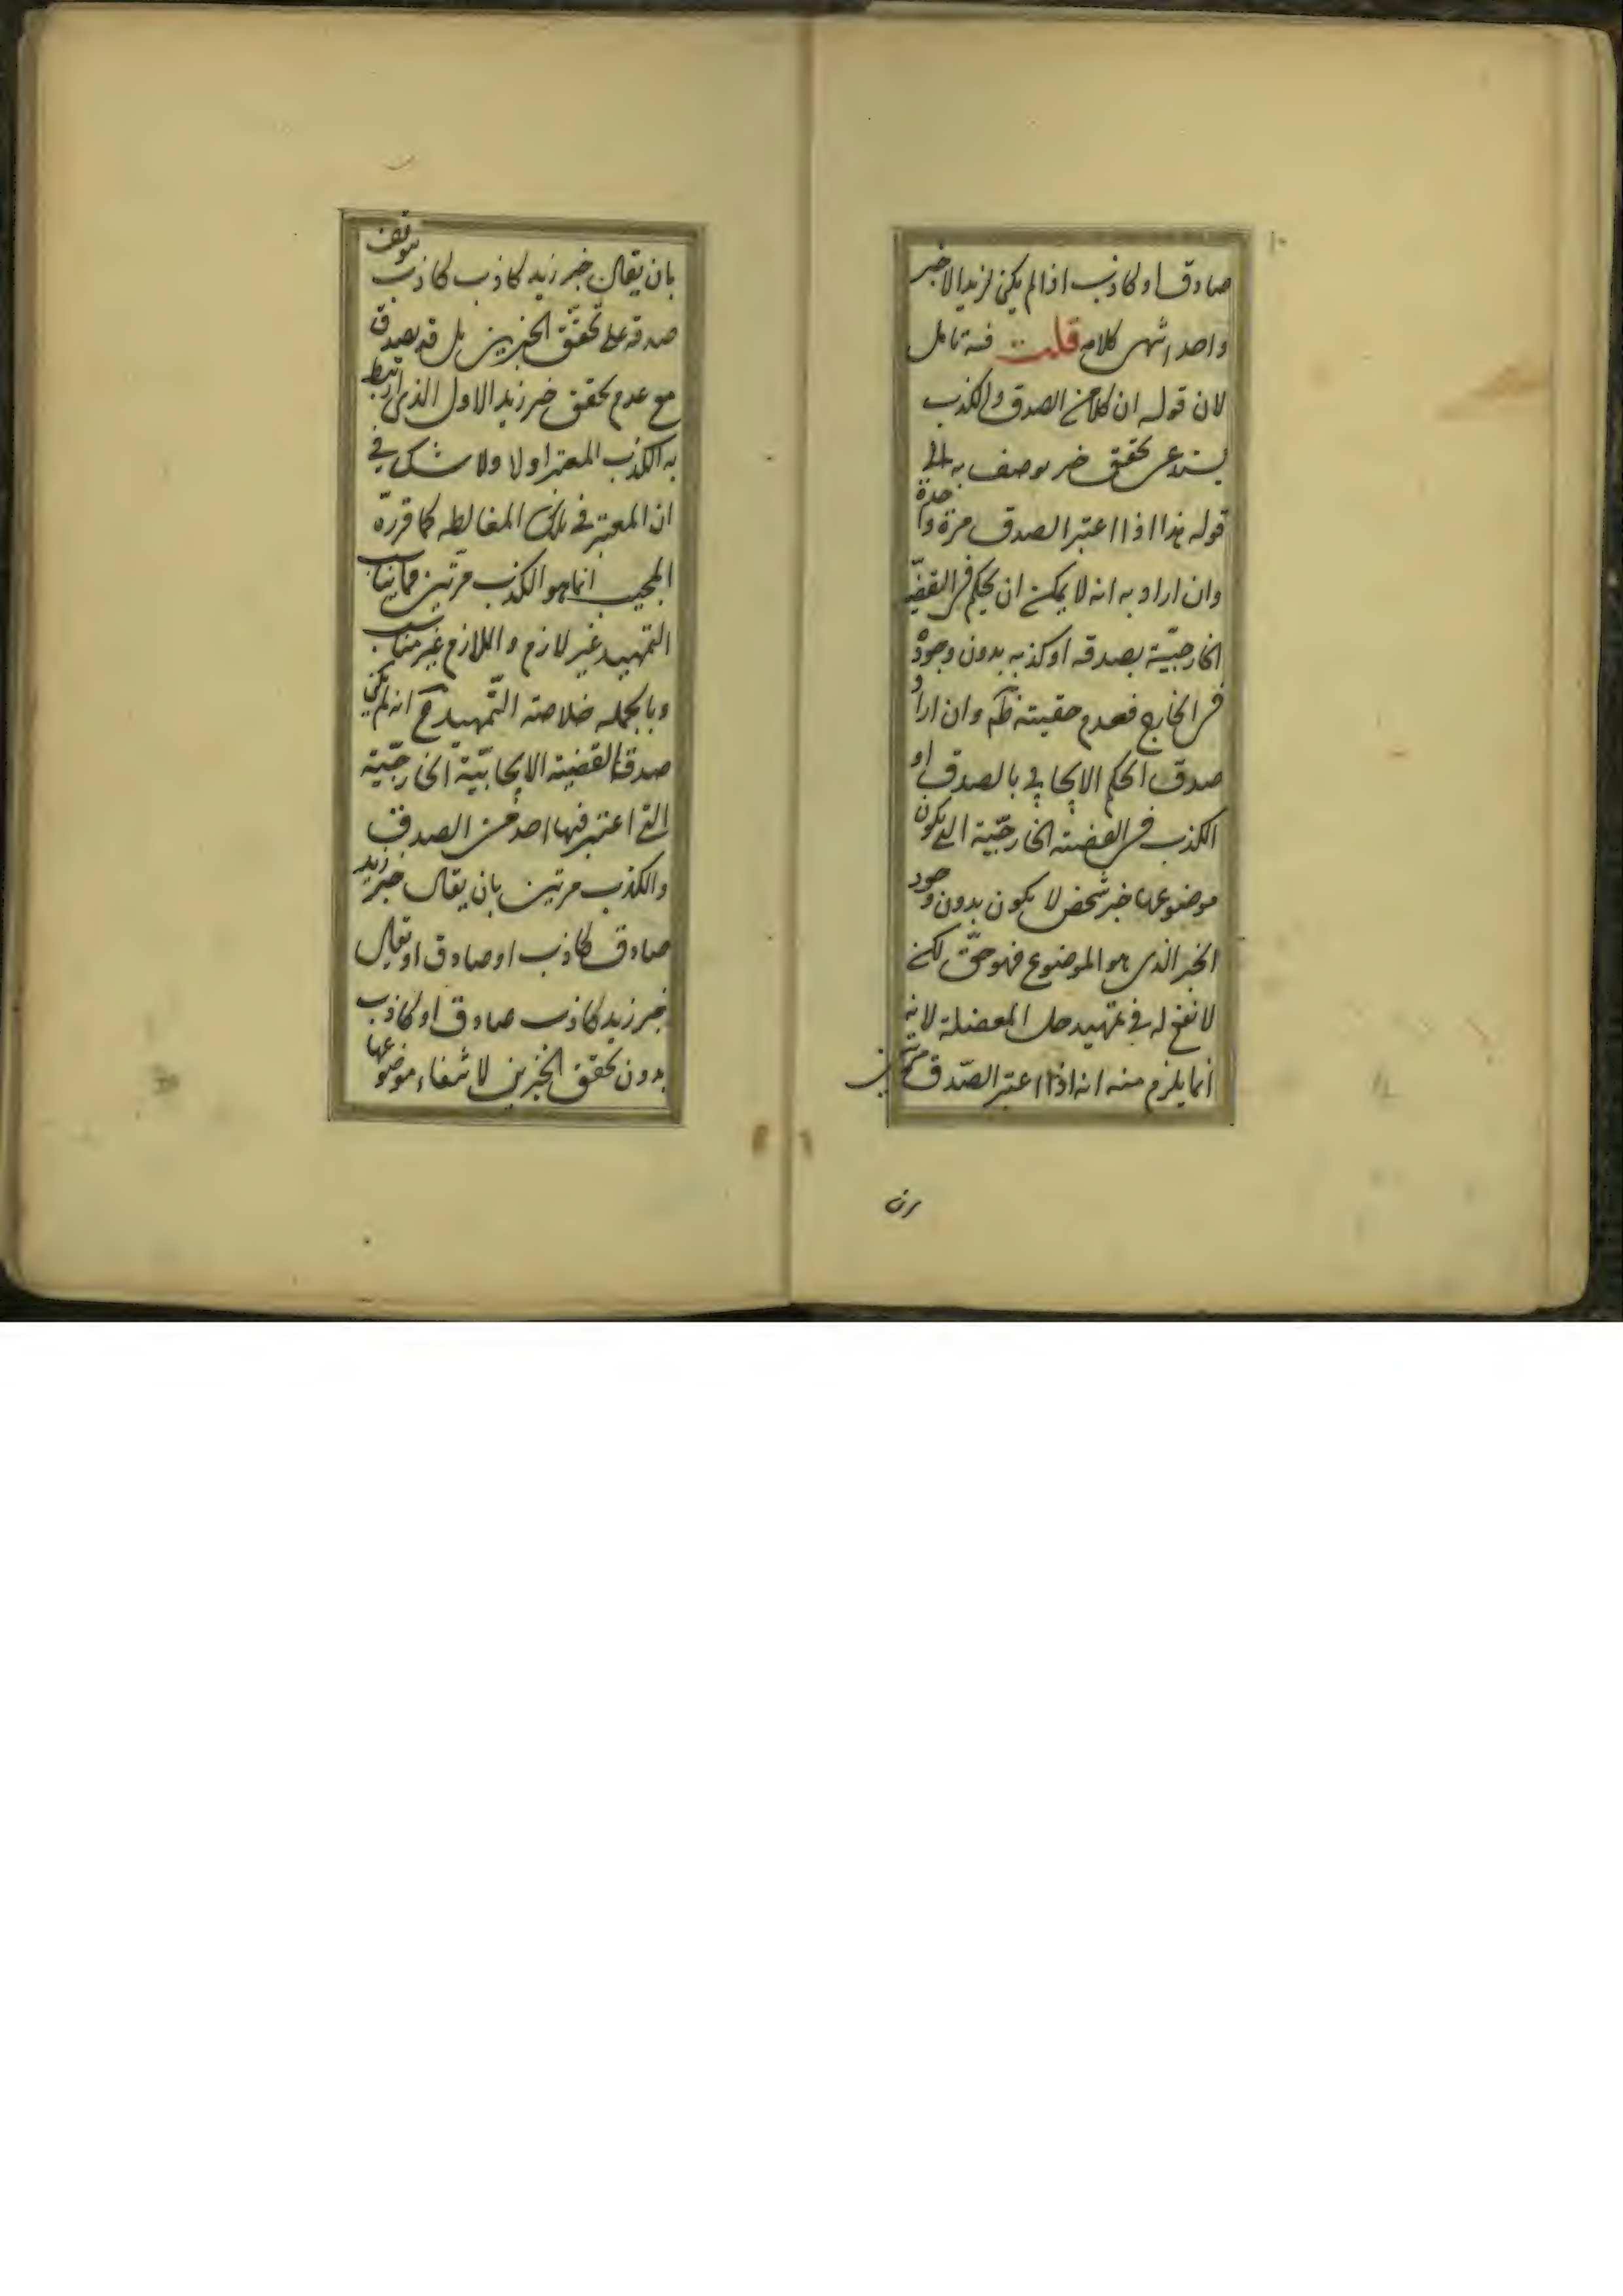 ١٠
صادق او كاذب اذا لم يكن لزيد الا خبر
واحد انتهى كلامه قلت فيه تامل
لان قوله ان كلا من الصدق والكذب
يستدعى تحقق خبر يوصف به الى
قوله هذا اذا اعتبر الصدق مرة واحدة
وان اراد به انه لا يمكن ان يحكم فى القضيّة
الخارجيّة بصدقه او كذبه بدون وجوده
فى الخارج فعدم حقيته ظ وان اراد
صدق الحكم الايجابى بالصدق او
الكذب فى القضية الخارجيّة التى يكون
موضوعها خبر شخص لا يكون بدون وجود
الخبر الذى هو الموضوع فهو حقّ لكن
لا نفع له فى تمهيد حل المعضلة لانه
انما يلزم منه انه اذا اعتبر الصّدق مرتين
بان يقال خبر زيد كاذب كاذب يتوقف
صدقه على تحقّق الخبرين بل قد يصدق
مع عدم تحقق خبر زيد الاول الذى ارتبط
به الكذب المعتبر اولا ولا شك فى
ان المعتبر فى تلك المغالطه كما قررّه
المجيب انما هو الكذب مرتين فما يناسب
التمهيد غير لازم واللازم غير مناسب
وبالجمله خلاصة التّمهيد ح انه لم يكن
صدق القضية الايجابيّة الخارجيّة
التى اعتبر فيها احد من الصدق
والكذب مرتين بان يقال خبر زيد
صادق كاذب او صادق او يقال
خبر زيد كاذب صادق او كاذب
بدون تحقق الخبرين لانتفاء موضوعها